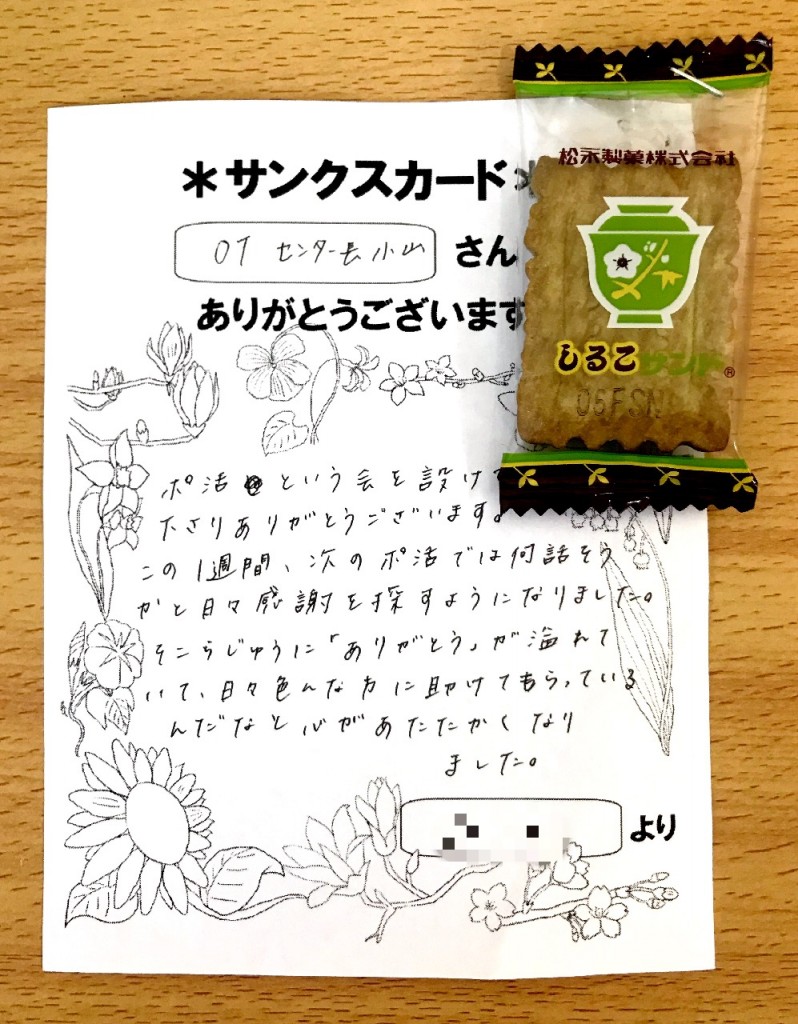 ＊サンクスカード＊
OT センター長 小山 さん
ありがとうございます
ポ活 という会を設けて
下さりありがとうございます。
この1週間、次のポ活では何話そう
かと日々感謝を探すようになりました。
そこらじゅうに「ありがとう」が溢れて
いて、日々色んな方に助けてもらっている
んだなと心があたたかくなり
ました。
より
松永製菓株式会社
しるこサンド®
05FSN